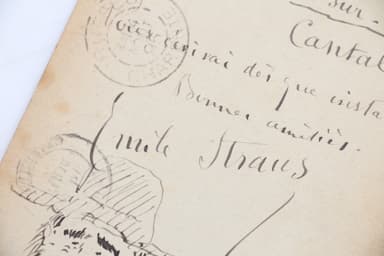 sur-
Cantal
Vous écrirai dès que insta
Bonnes amitiés.
Emile Straus